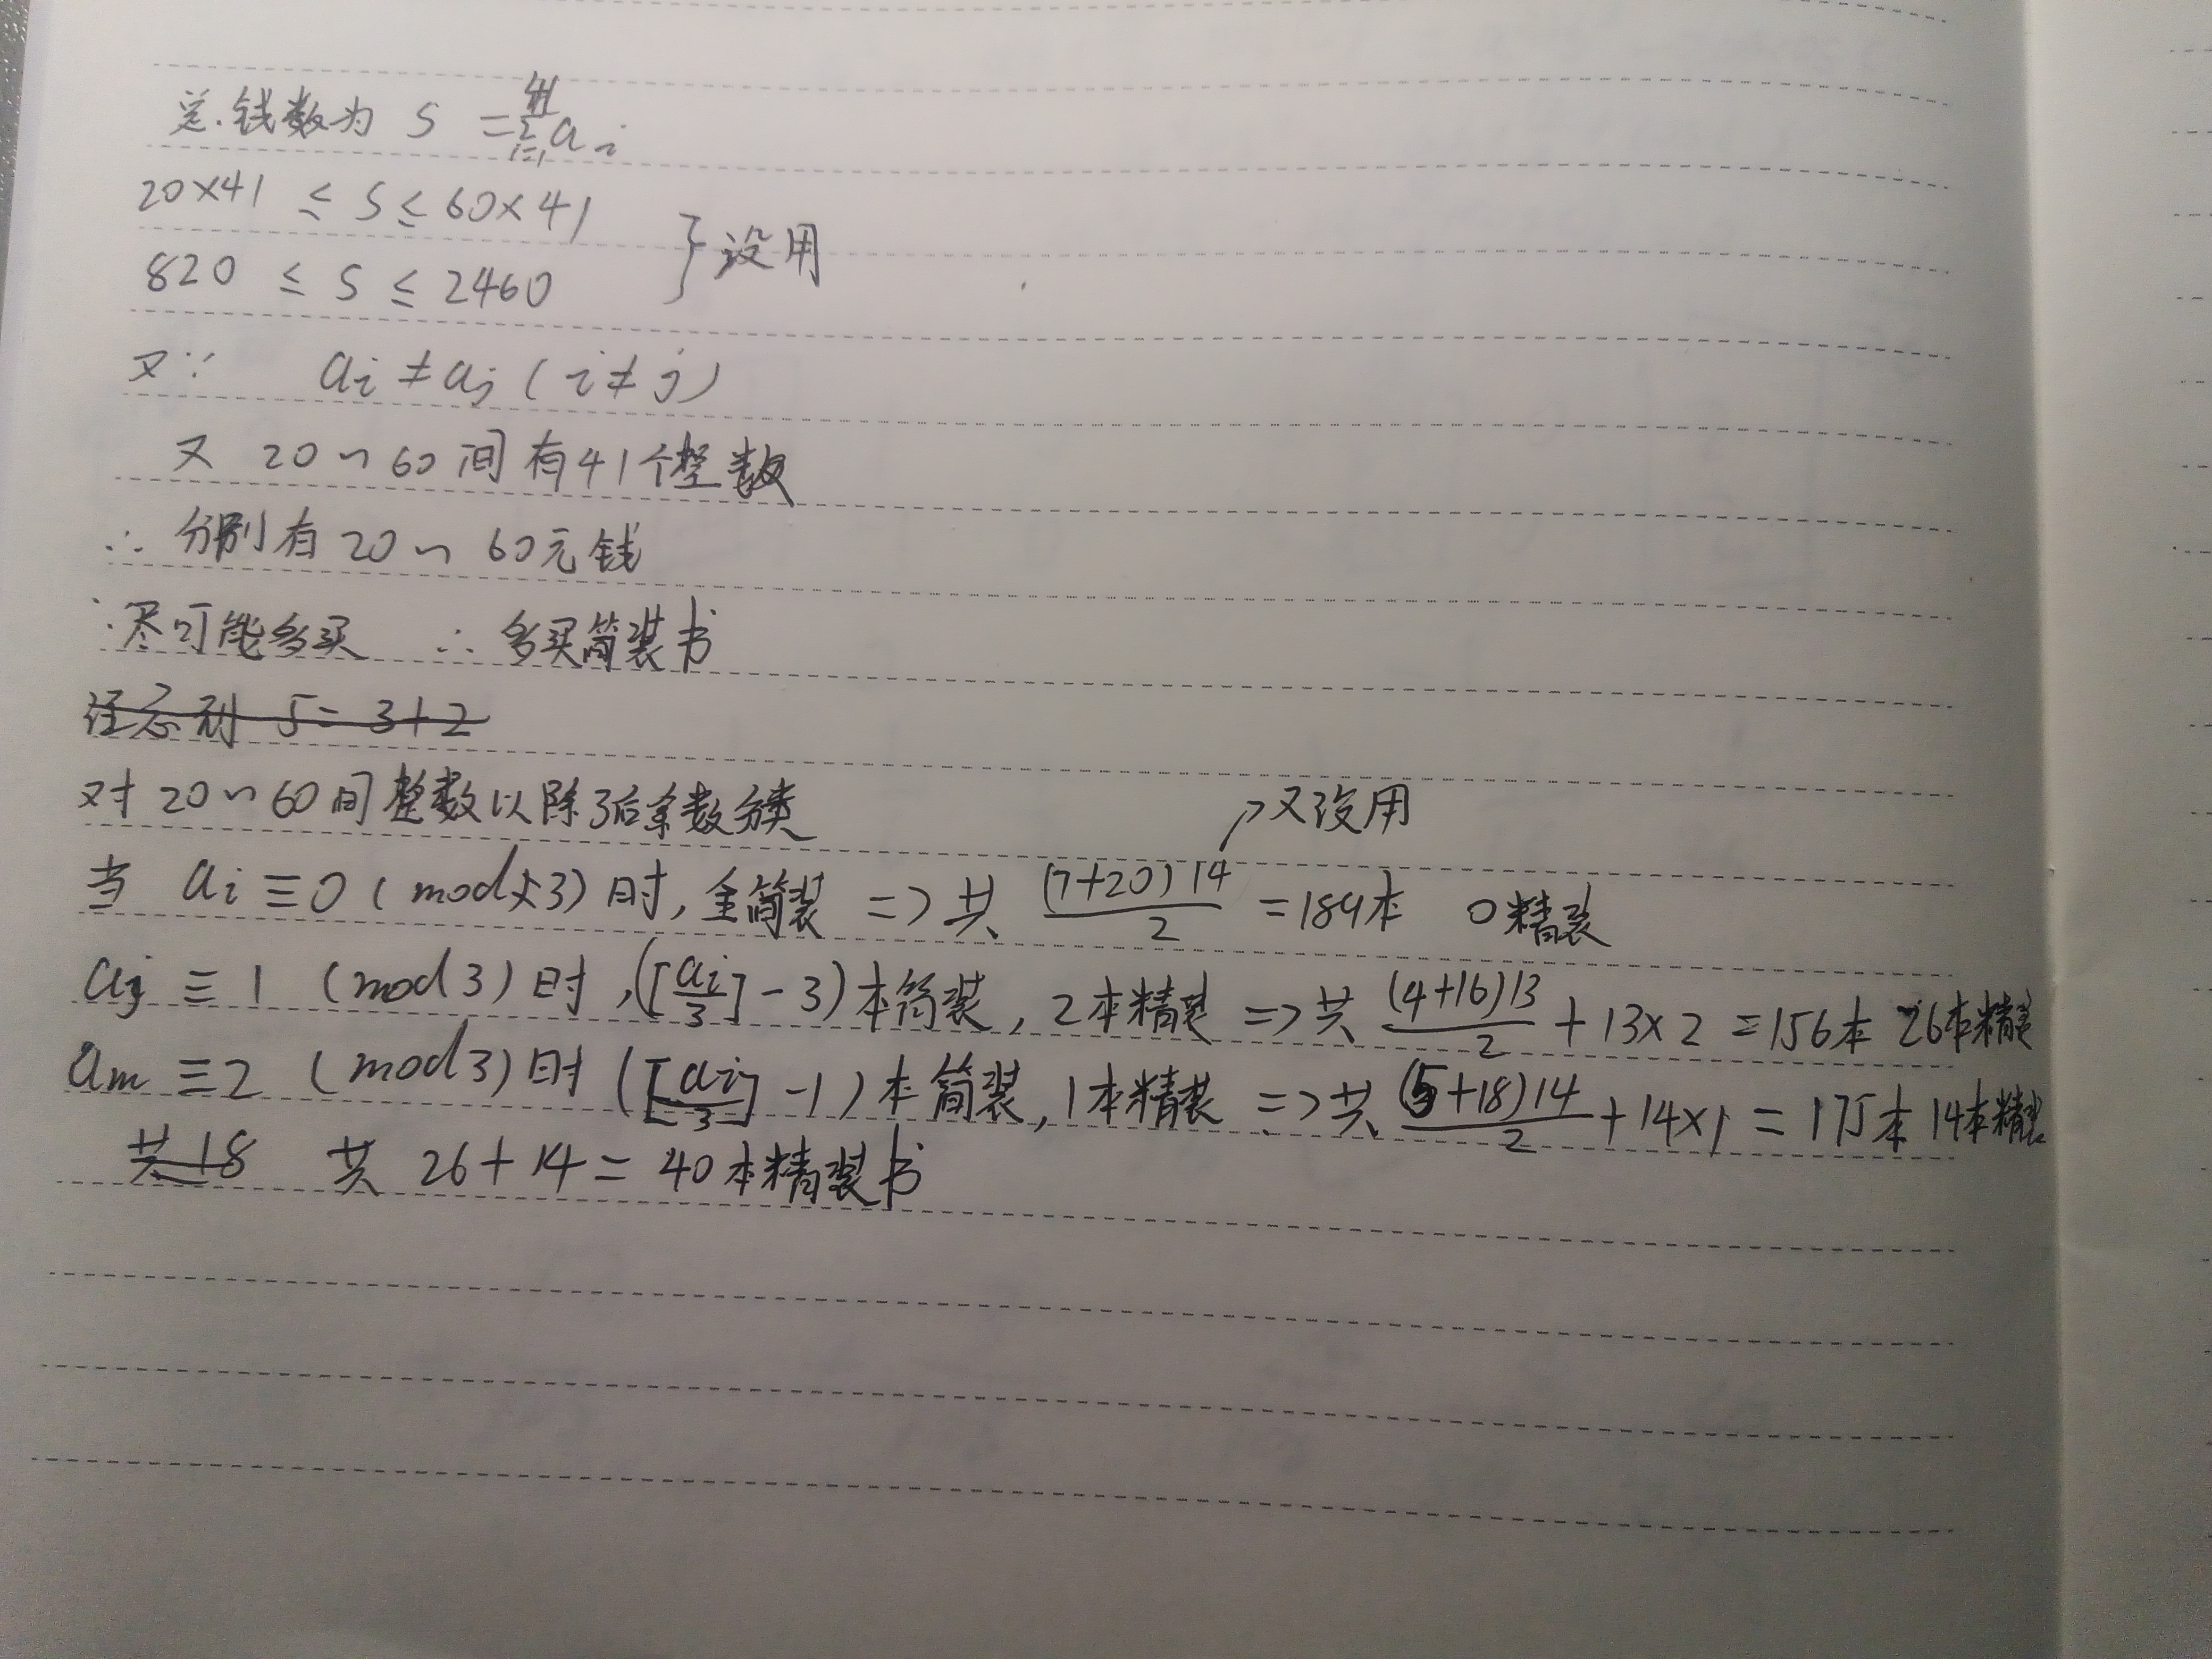 总.钱数为 S = \sum_{i=1}^{41} a_i
20×41 ≤ S ≤ 60×41
820 ≤ S ≤ 2460 } 没用
又∵ a_i ≠ a_j (i≠j)
又 20~60间有41个整数
∴ 分别有20~60元钱
∵尽可能多买 ∴ 多买简装书
注意到 5=3+2
对20~60间整数以除3后余数分类
↗又没用
当 a_i ≡0 (mod 3) 时, 全简装 => 共 \frac{(7+20)14}{2} =189本 0精装
a_j ≡ 1 (mod 3) 时, ([\frac{a_i}{3}] - 3) 本简装, 2本精装 => 共 \frac{(4+16)13}{2} + 13×2 = 156本 26本精装
a_m ≡2 (mod 3) 时 ([\frac{a_i}{3}] - 1) 本简装, 1本精装 => 共 \frac{(5+18)14}{2} + 14×1 = 175本 14本精装
共18 共 26+14= 40本精装书